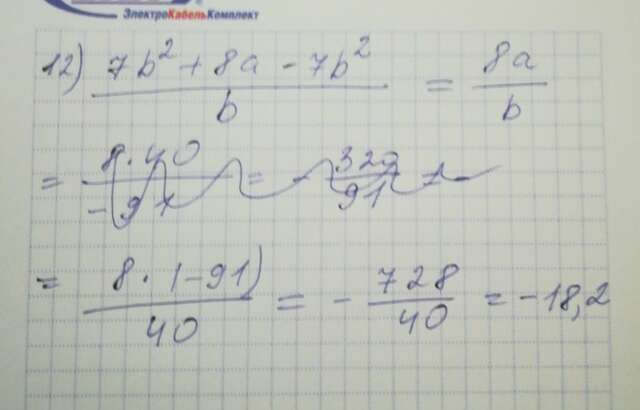 ЭлектроКабельКомплект
12) (7b² + 8a - 7b²)/b = 8a/b
= (8·40)/(-91) = - 320/91 =
= (8·(-91))/40 = - 728/40 = -18,2